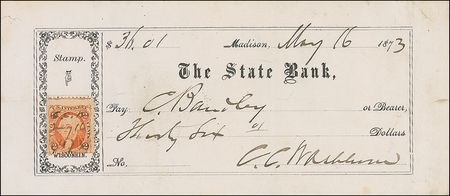 $ 36.01 Madison, May 16 1873
Stamp.
The State Bank,
Pay C. Bradley or Bearer,
Thirty Six 01 Dollars
WISCONSIN.
No. C. C. Washburn